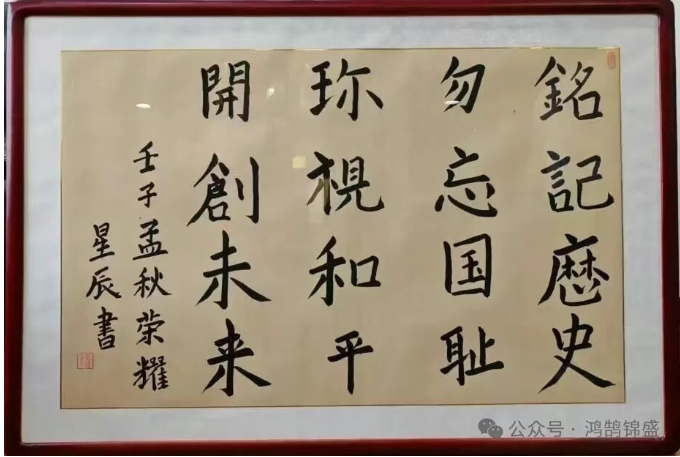 銘記歷史
勿忘国耻
珎視和平
開創未来
壬子孟秋荣耀
星辰書
公众号·鸿鹄锦盛